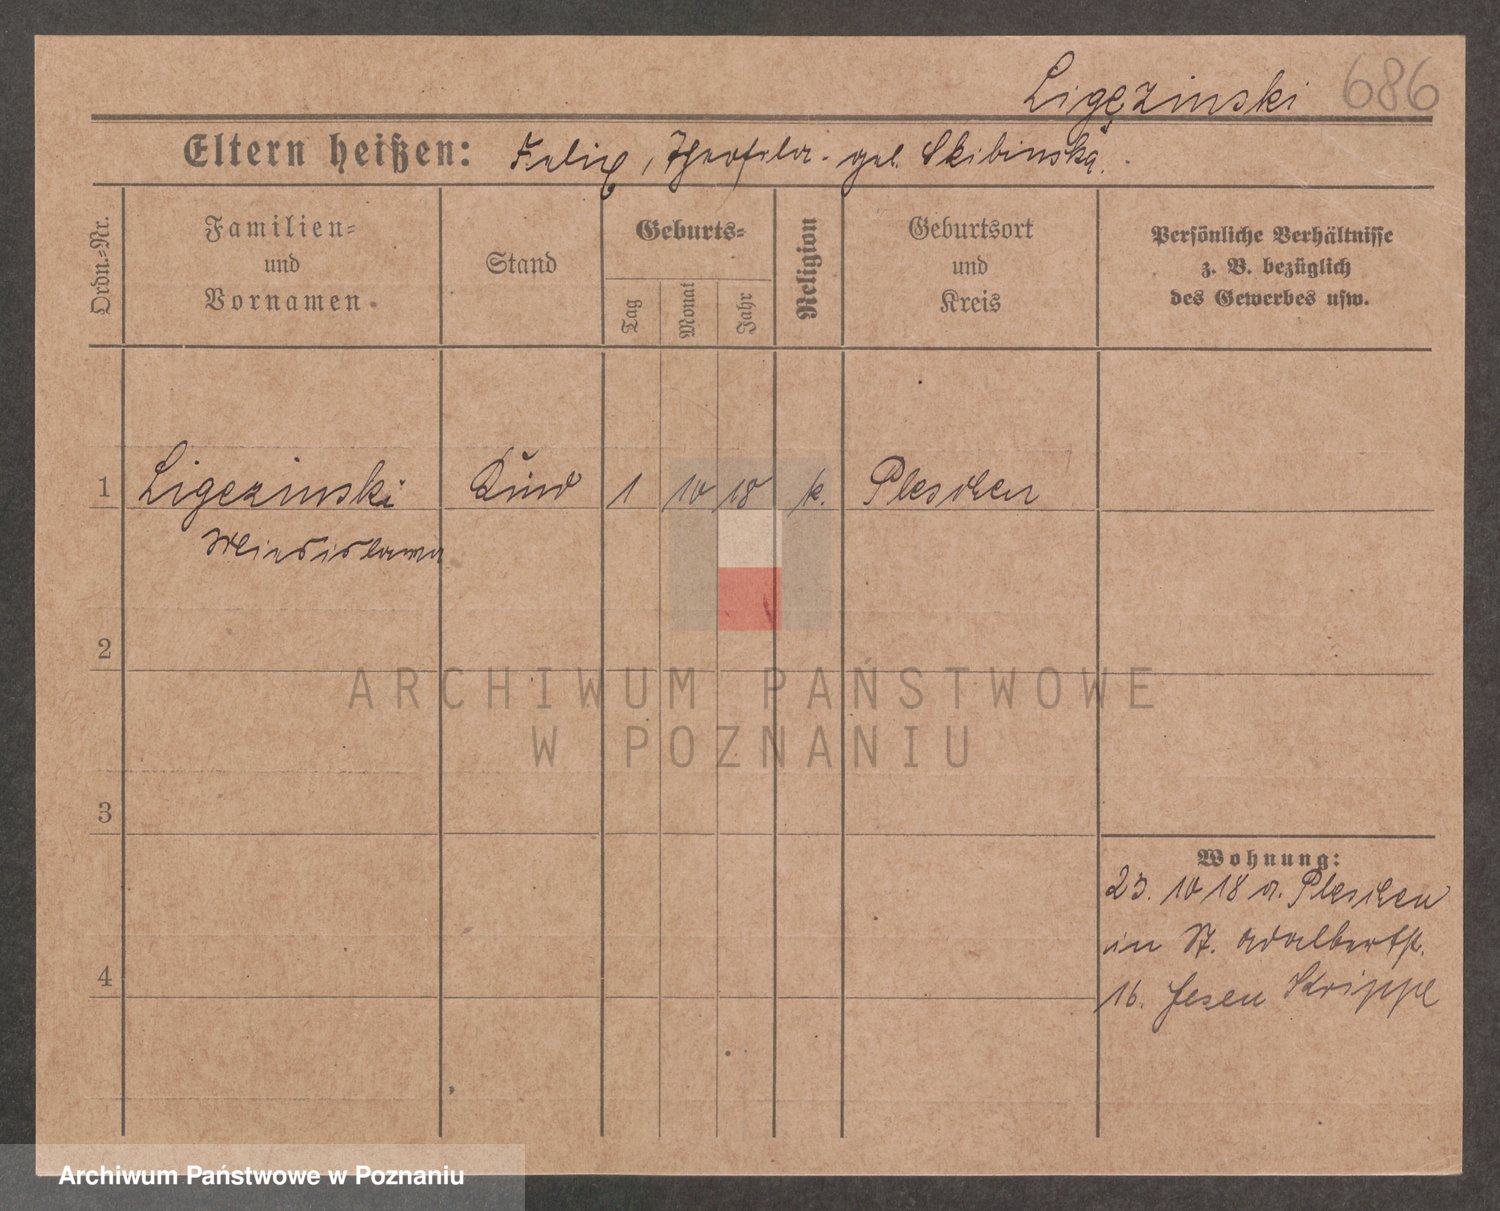 Ligęzinski 686
Eltern heißen: Felix, Theofila. geb. Skibinska.
Ordn.-Nr.
Familien-
und
Vornamen
Stand
Geburts-
Tag
Monat
Jahr
Religion
Geburtsort
und
Kreis
Persönliche Verhältnisse
z. B. bezüglich
des Gewerbes usw.
1 Ligezinski Kind 1 10 18 k. Pleschen
2
3
4
Wohnung:
23. 10 18 a. Pleschen
in St. Adalbertst.
16. Krippe
ARCHIWUM PAŃSTWOWE
W POZNANIU
Archiwum Państwowe w Poznaniu